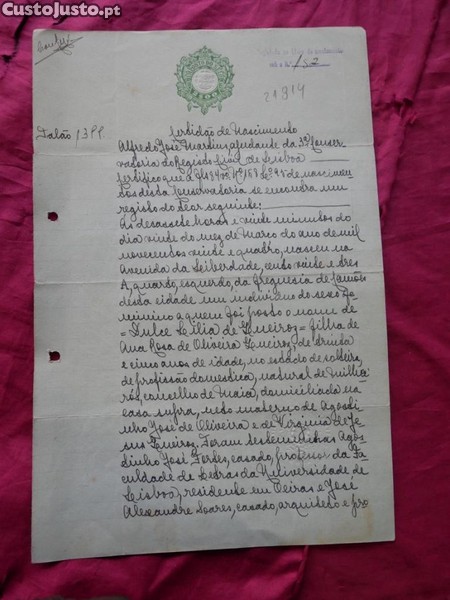 CustoJusto.pt
20314
Talão 13 PP.
Certidão de Nascimento
Alfredo José Martins, ajudante da 3ª Conser-
vatoria do Registo Civil de Lisboa
Certifico que a fls 94 nº 187 de nascimen-
tos desta Conservatoria se encontra um
registo do teor seguinte:
As dessasete horas e vinte minutos do
dia vinte do mez de Março do ano de mil
novecentos vinte e quatro, nasceu na
Avenida da Liberdade, cento vinte e tres
A, quarto, esquerdo, da freguesia de Camões
desta cidade um individuo do sexo fe-
minino a quem foi posto o nome de
= Dulce Lilia de Queiroz = filha de
Ana Rosa de Oliveira Queiroz, de trinta
e cinco anos de idade, no estado de solteira,
de profissão domestica, natural de Milhei-
rós, concelho de Maia, domiciliada na
casa supra, neto materno de Agosti-
nho José de Oliveira e de Virginia de Je-
sus Queiroz. Foram testemunhas Agos-
tinho José Fortes, casado, professor da Fa-
culdade de Letras da Universidade de
Lisboa, residente em Oeiras e José
Alexandre Soares, casado, arquiteto e pro
CustoJusto.pt